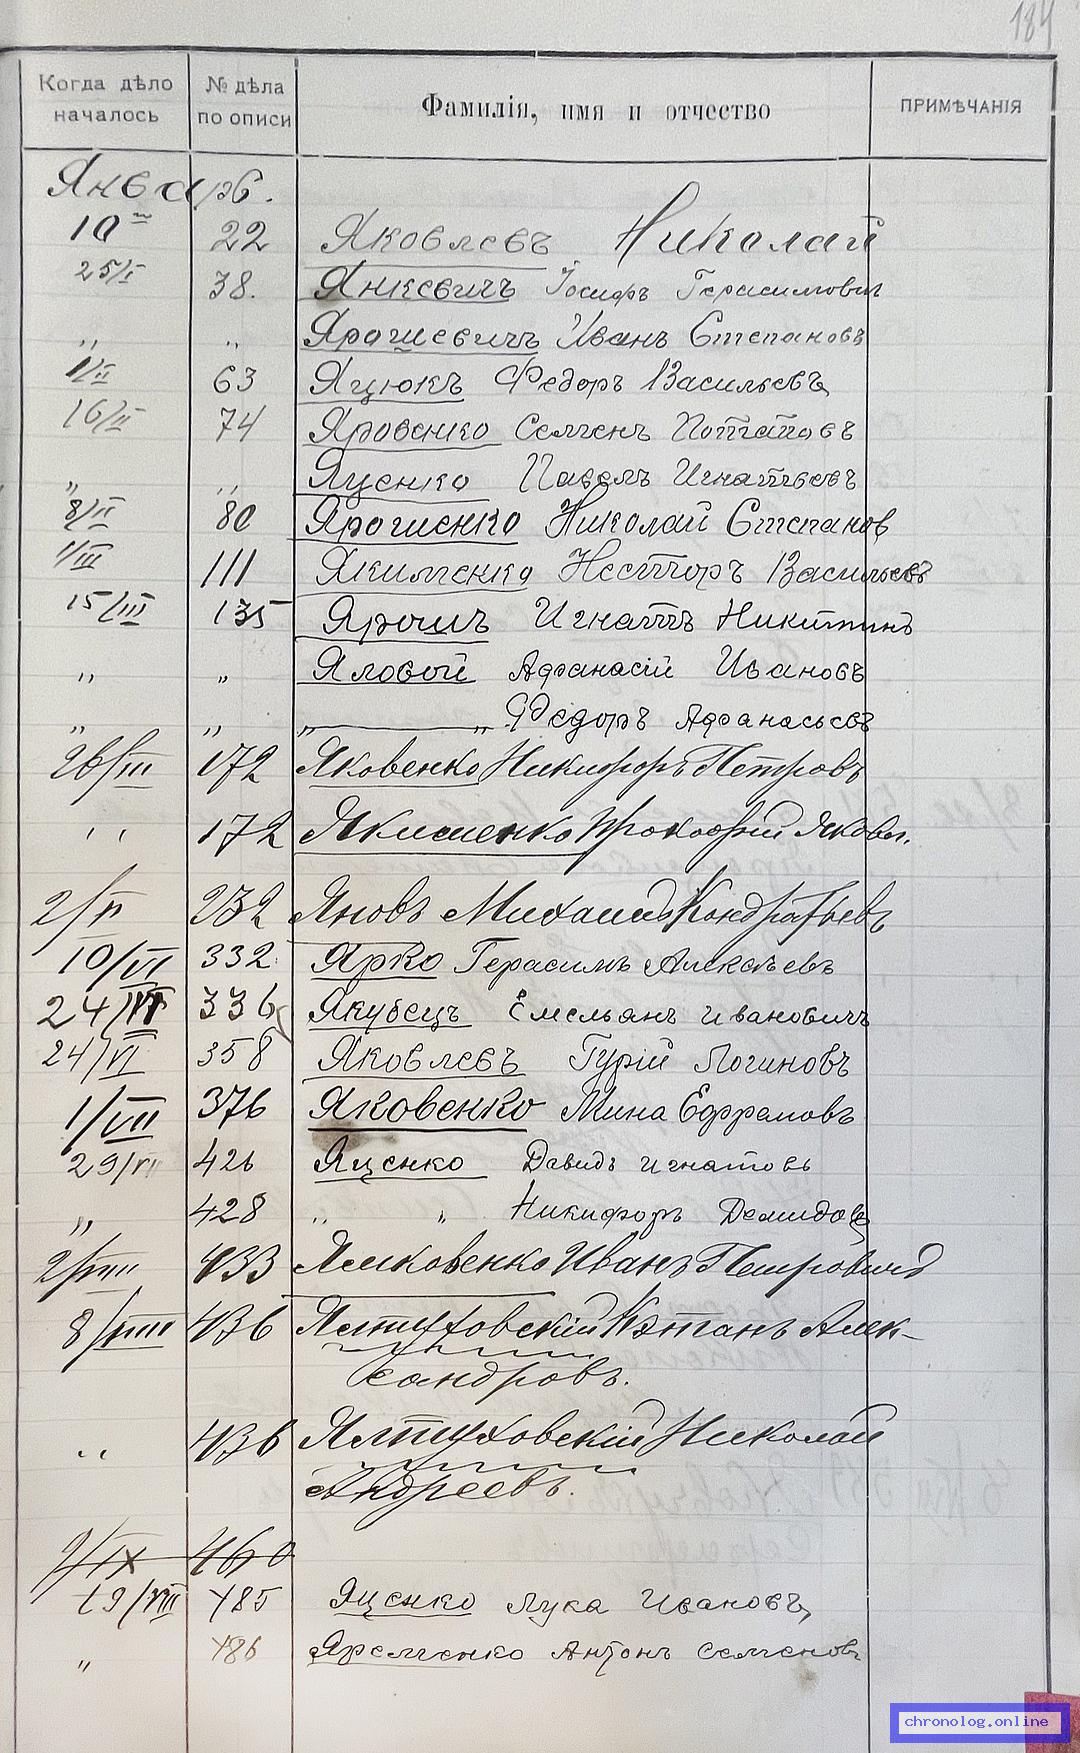 184
Когда дѣло началось № дѣла по описи Фамилія, имя и отчество ПРИМѢЧАНІЯ
Января.
10 22 Яковлевъ Николай
25/I 38. Янкевичъ Іосифъ Герасимович
„ „ Ярошевичъ Иванъ Степановъ
1/II 63 Яцюкъ Федоръ Васильевъ
16/II 74 Яровенко Семенъ Потаповъ
„ „ Яценко Павелъ Игнатьевъ
8/II 80 Ярошенко Николай Степанов
1/III 111 Якименко Несторъ Васильевъ
15/III 135 Ярошъ Игнатъ Никитинъ
„ „ Яловой Афанасій Ивановъ
„ „ „ „ Федоръ Афанасьевъ
26/III 172 Яковенко Никифоръ Петровъ
„ 172 Якименко Прокофій Яковл.
2/V 232 Яновъ Михаилъ Кондратьевъ
10/VI 332 Ярко Герасимъ Алексѣевъ
24/VI 336 Якубецъ Емельянъ Ивановичъ
24/VI 358 Яковлевъ Гурій Логиновъ
1/VII 376 Яковенко Мина Ефремовъ
29/VII 426 Яценко Давидъ Игнатовъ
„ 428 „ „ Никифоръ Демидов
2/VIII 433 Ямковенко Иванъ Петровичъ
8/VIII 436 Ялтуховскій Кэтанъ Алек-
сандровъ.
„ 436 Ялтуховскій Николай
Андреевъ.
2/IX 460
19/VIII 485 Яценко Лука Ивановъ
„ 486 Яременко Антонъ Семеновъ
chronolog.online